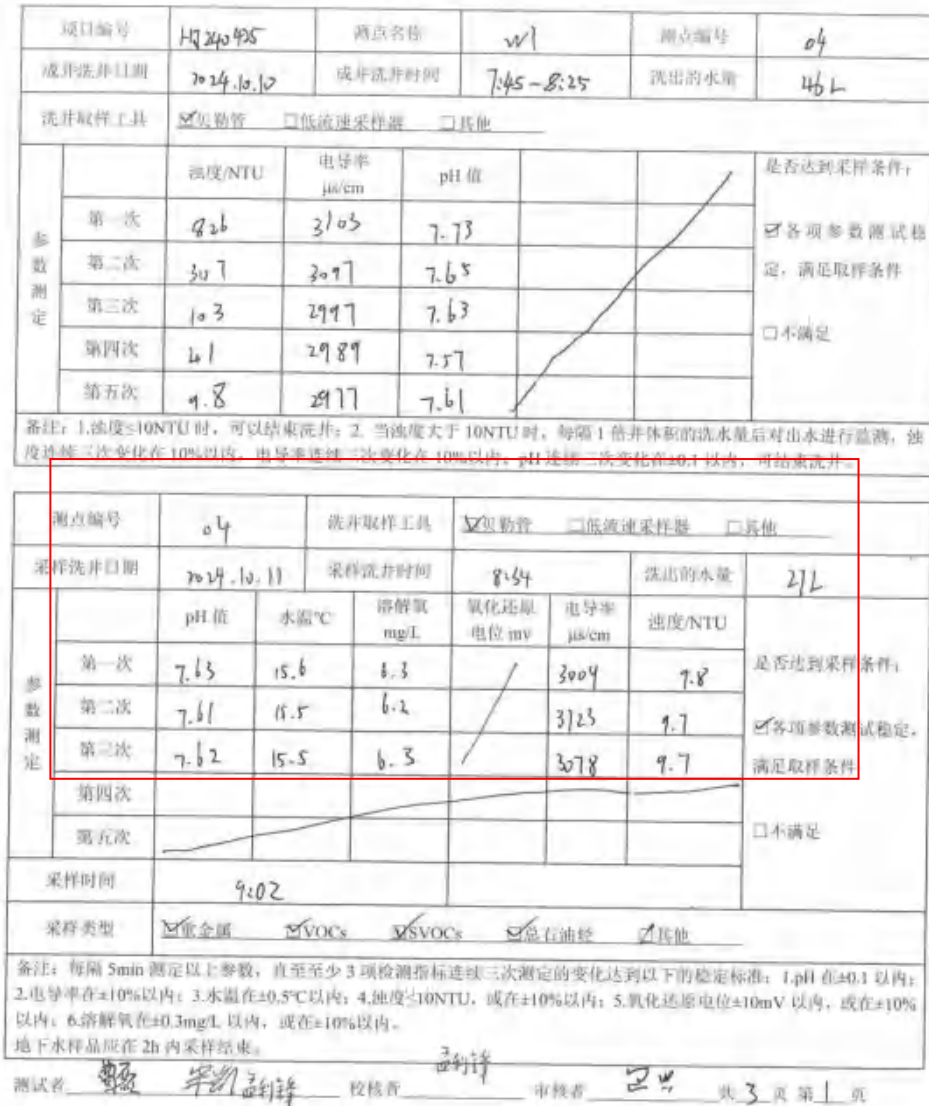 项目编号 HJ240425 测点名称 W1 测点编号 04
成井洗井日期 2024.10.10 成井洗井时间 7:45-8:25 洗出的水量 46L
洗井取样工具 ☑贝勒管 □低流速采样器 □其他
参数测定 浊度/NTU 电导率 μs/cm pH 值 是否达到采样条件:
第一次 826 3103 7.73 ☑各项参数测试稳
第二次 307 3097 7.65 定,满足取样条件
第三次 103 2997 7.63
第四次 41 2989 7.57 □不满足
第五次 9.8 2977 7.61
备注:1.浊度≤10NTU 时,可以结束洗井;2. 当浊度大于 10NTU 时,每隔 1 倍井体积的洗水量后对出水进行监测,浊
度连续三次变化在 10%以内,电导率连续三次变化在 10%以内,pH 连续三次变化在±0.1 以内,可结束洗井。
测点编号 04 洗井取样工具 ☑贝勒管 □低流速采样器 □其他
采样洗井日期 2024.10.11 采样洗井时间 8:34 洗出的水量 27L
参数测定 pH 值 水温℃ 溶解氧 mg/L 氧化还原电位 mv 电导率 μs/cm 浊度/NTU
第一次 7.63 15.6 6.3 3004 9.8 是否达到采样条件:
第二次 7.61 15.5 6.2 3123 9.7 ☑各项参数测试稳定,
第三次 7.62 15.5 6.3 3078 9.7 满足取样条件
第四次
第五次 □不满足
采样时间 9:02
采样类型 ☑重金属 ☑VOCs ☑SVOCs ☑总石油烃 ☑其他
备注:每隔 5min 测定以上参数,直至至少 3 项检测指标连续三次测定的变化达到以下的稳定标准:1.pH 在±0.1 以内;
2.电导率在±10%以内;3.水温在±0.5℃以内;4.浊度≤10NTU,或在±10%以内;5.氧化还原电位±10mV 以内,或在±10%
以内;6.溶解氧在±0.3mg/L 以内,或在±10%以内。
地下水样品应在 2h 内采样结束。
测试者 孟利锋 校核者 孟利锋 审核者 共 3 页 第 1 页